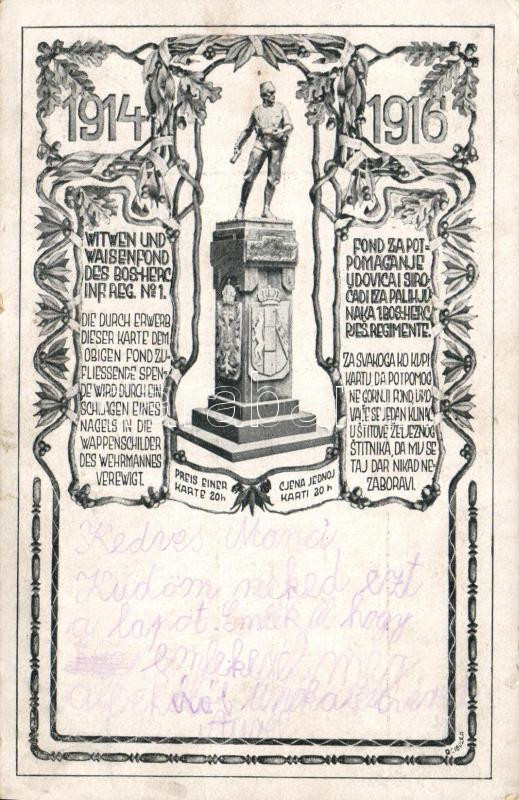 1914
1916
WITWEN UND
WAISENFOND
DES BOS-HERC
INF. REG. Nº 1.
DIE DURCH ERWERB
DIESER KARTE DEM
OBIGEN FOND ZU-
FLIESSENDE SPEN-
DE WIRD DURCH EIN-
SCHLAGEN EINES
NAGELS IN DIE
WAPPENSCHILDER
DES WEHRMANNES
VEREWIGT.
FOND ZA POT-
POMAGANJE
UDOVICA I SIRO-
ČADI IZA PALIH JU-
NAKA 1. BOS-HERC
PJEŠ. REGIMENTE.
ZA SVAKOGA KO KUPI
KARTU DA POTPOMOG-
NE GORNJI FOND UKO-
VAT ĆE SE JEDAN KLINAC
U ŠTITOVE ŽELJEZNOG
ŠTITNIKA, DA MU SE
TAJ DAR NIKAD NE-
ZABORAVI.
PREIS EINER
KARTE 20h
CJENA JEDNOJ
KARTI 20h
Kedves
Küdöm neked ezt
a lapot. hogy